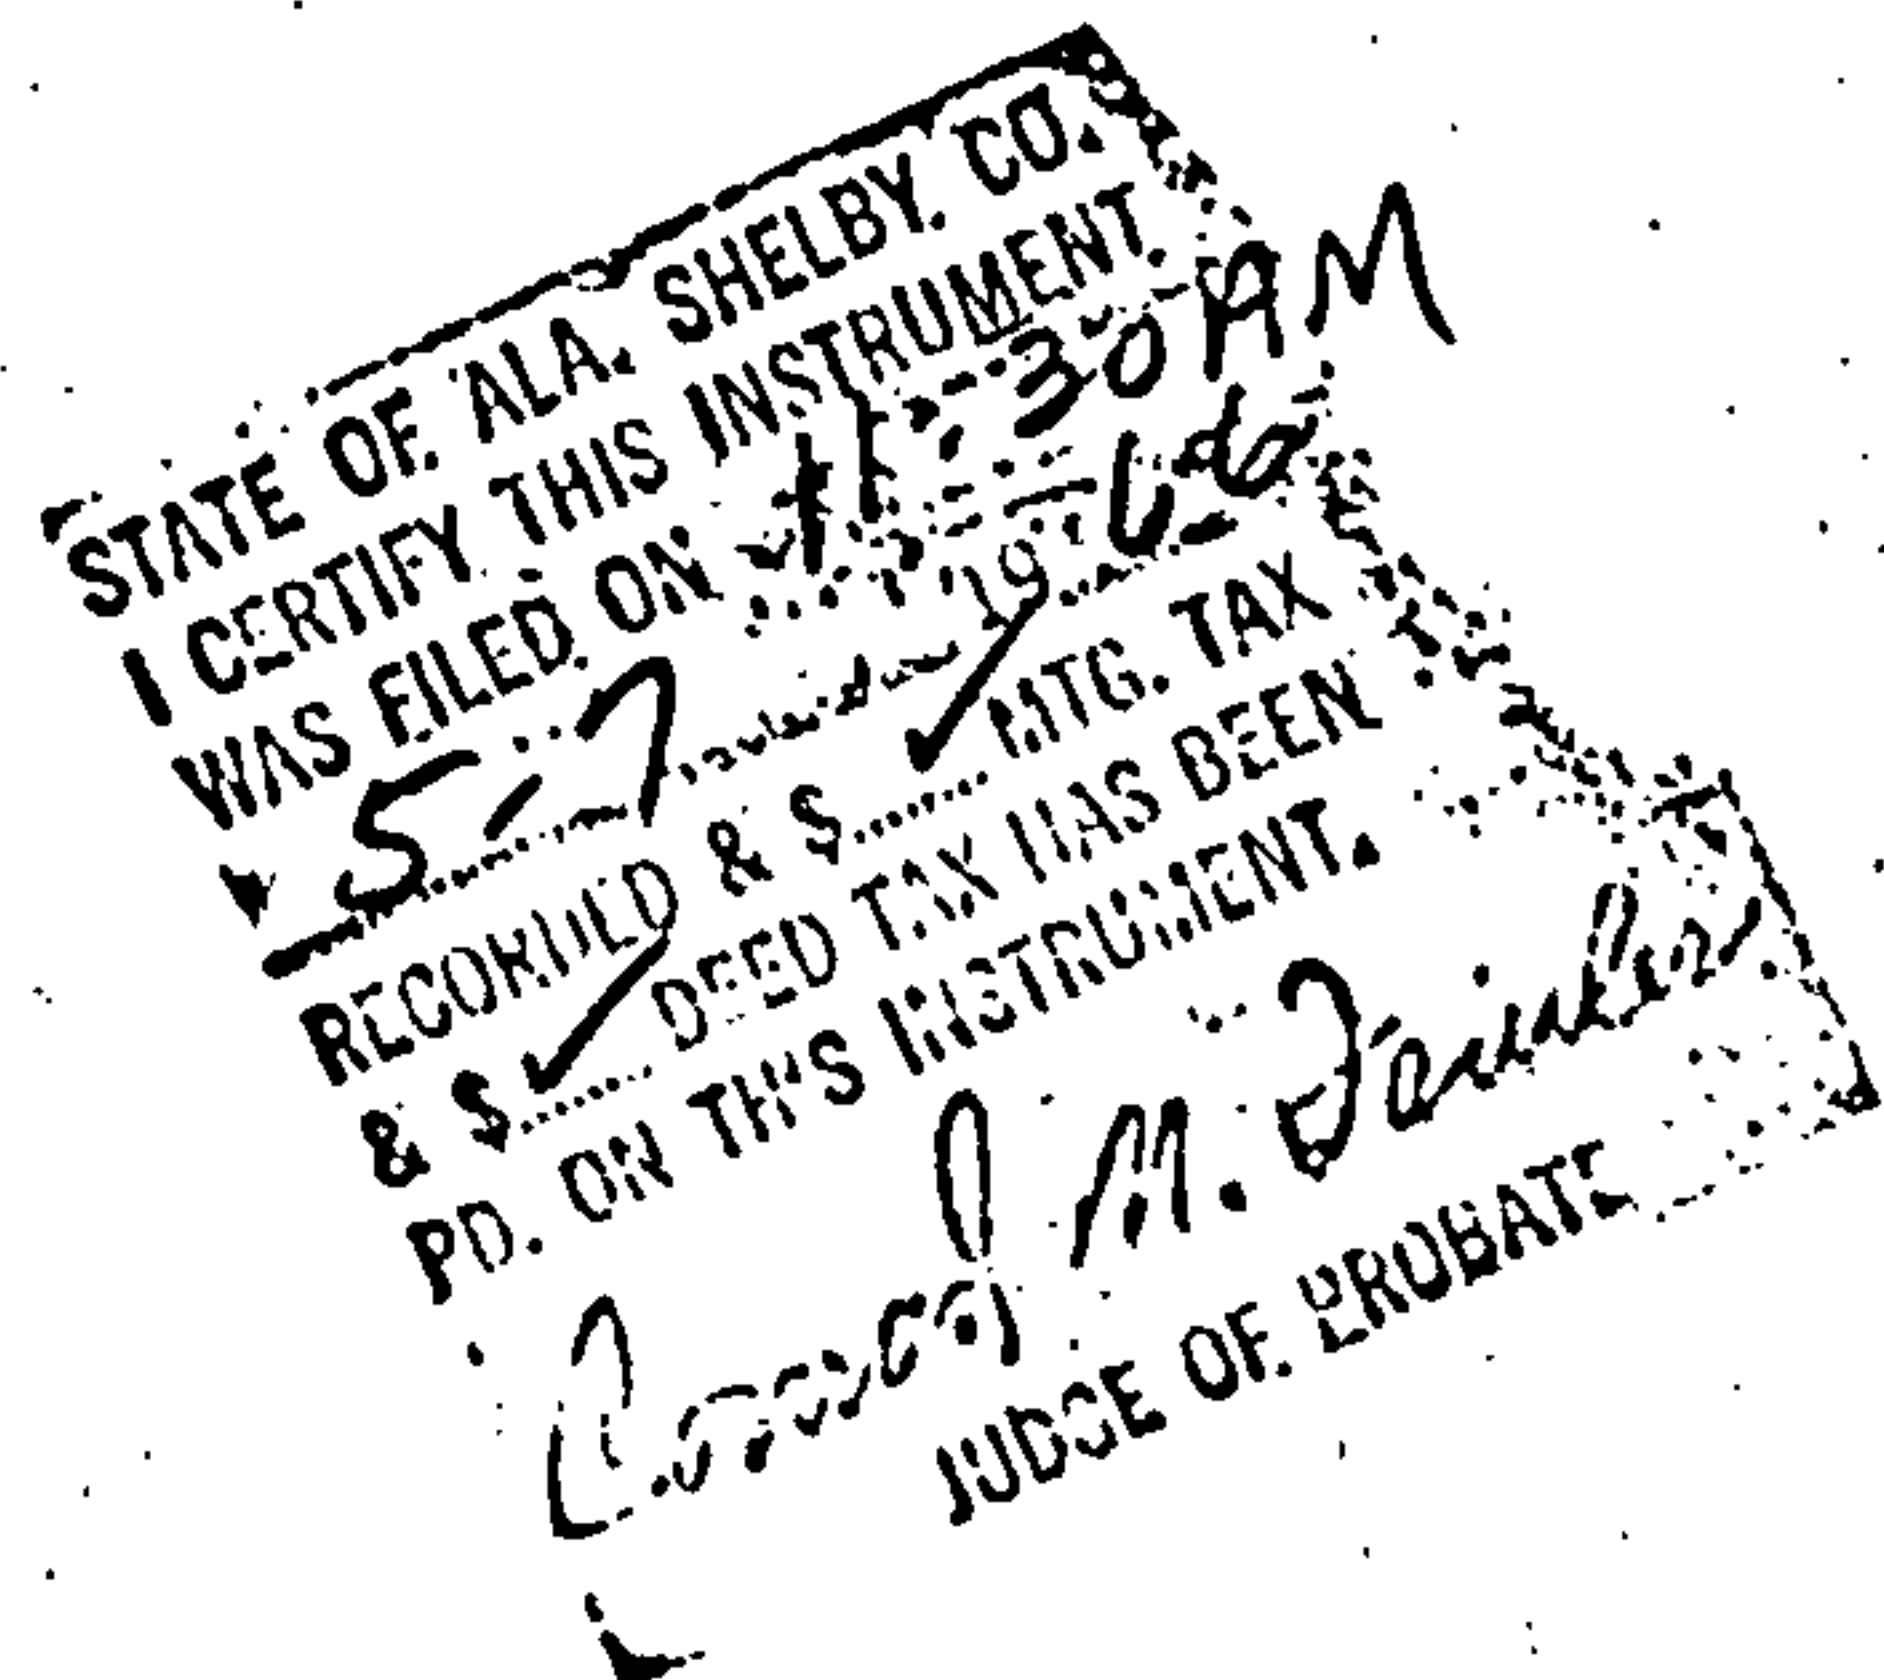 STATE OF ALA. SHELBY CO.
I CERTIFY THIS INSTRUMENT
WAS FILED ON 11:30 AM
5-7 19
RECORDED & $ MTG. TAX
& $ DEED TAX HAS BEEN
PD. ON THIS INSTRUMENT.
M.
JUDGE OF PROBATE